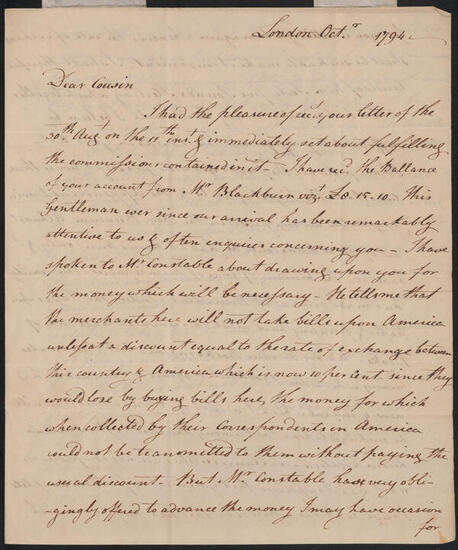 London Oct.r 1794.
Dear Cousin
I had the pleasure of rec.g your letter of the
30th Aug.t on the 11th inst. & immediately set about fulfilling
the commissions contained in it - I have rec.d the Ballance
of your account from Mr. Blackburn viz.t £8.15.10. This
Gentleman ever since our arrival has been remarkably
attentive to us & often enquires concerning you - I have
spoken to Mr. Constable about drawing upon you for
the money which will be necessary - He tells me that
the merchants here will not take bills upon America
unless at a discount equal to the rate of exchange between
this country & America which is now 10 per cent. since they
would lose by buying bills here, the money for which
when collected by their Correspondents in America
could not be transmitted to them without paying the
usual discount - But Mr. Constable has very obli-
-gingly offered to advance the money I may have occasion
for